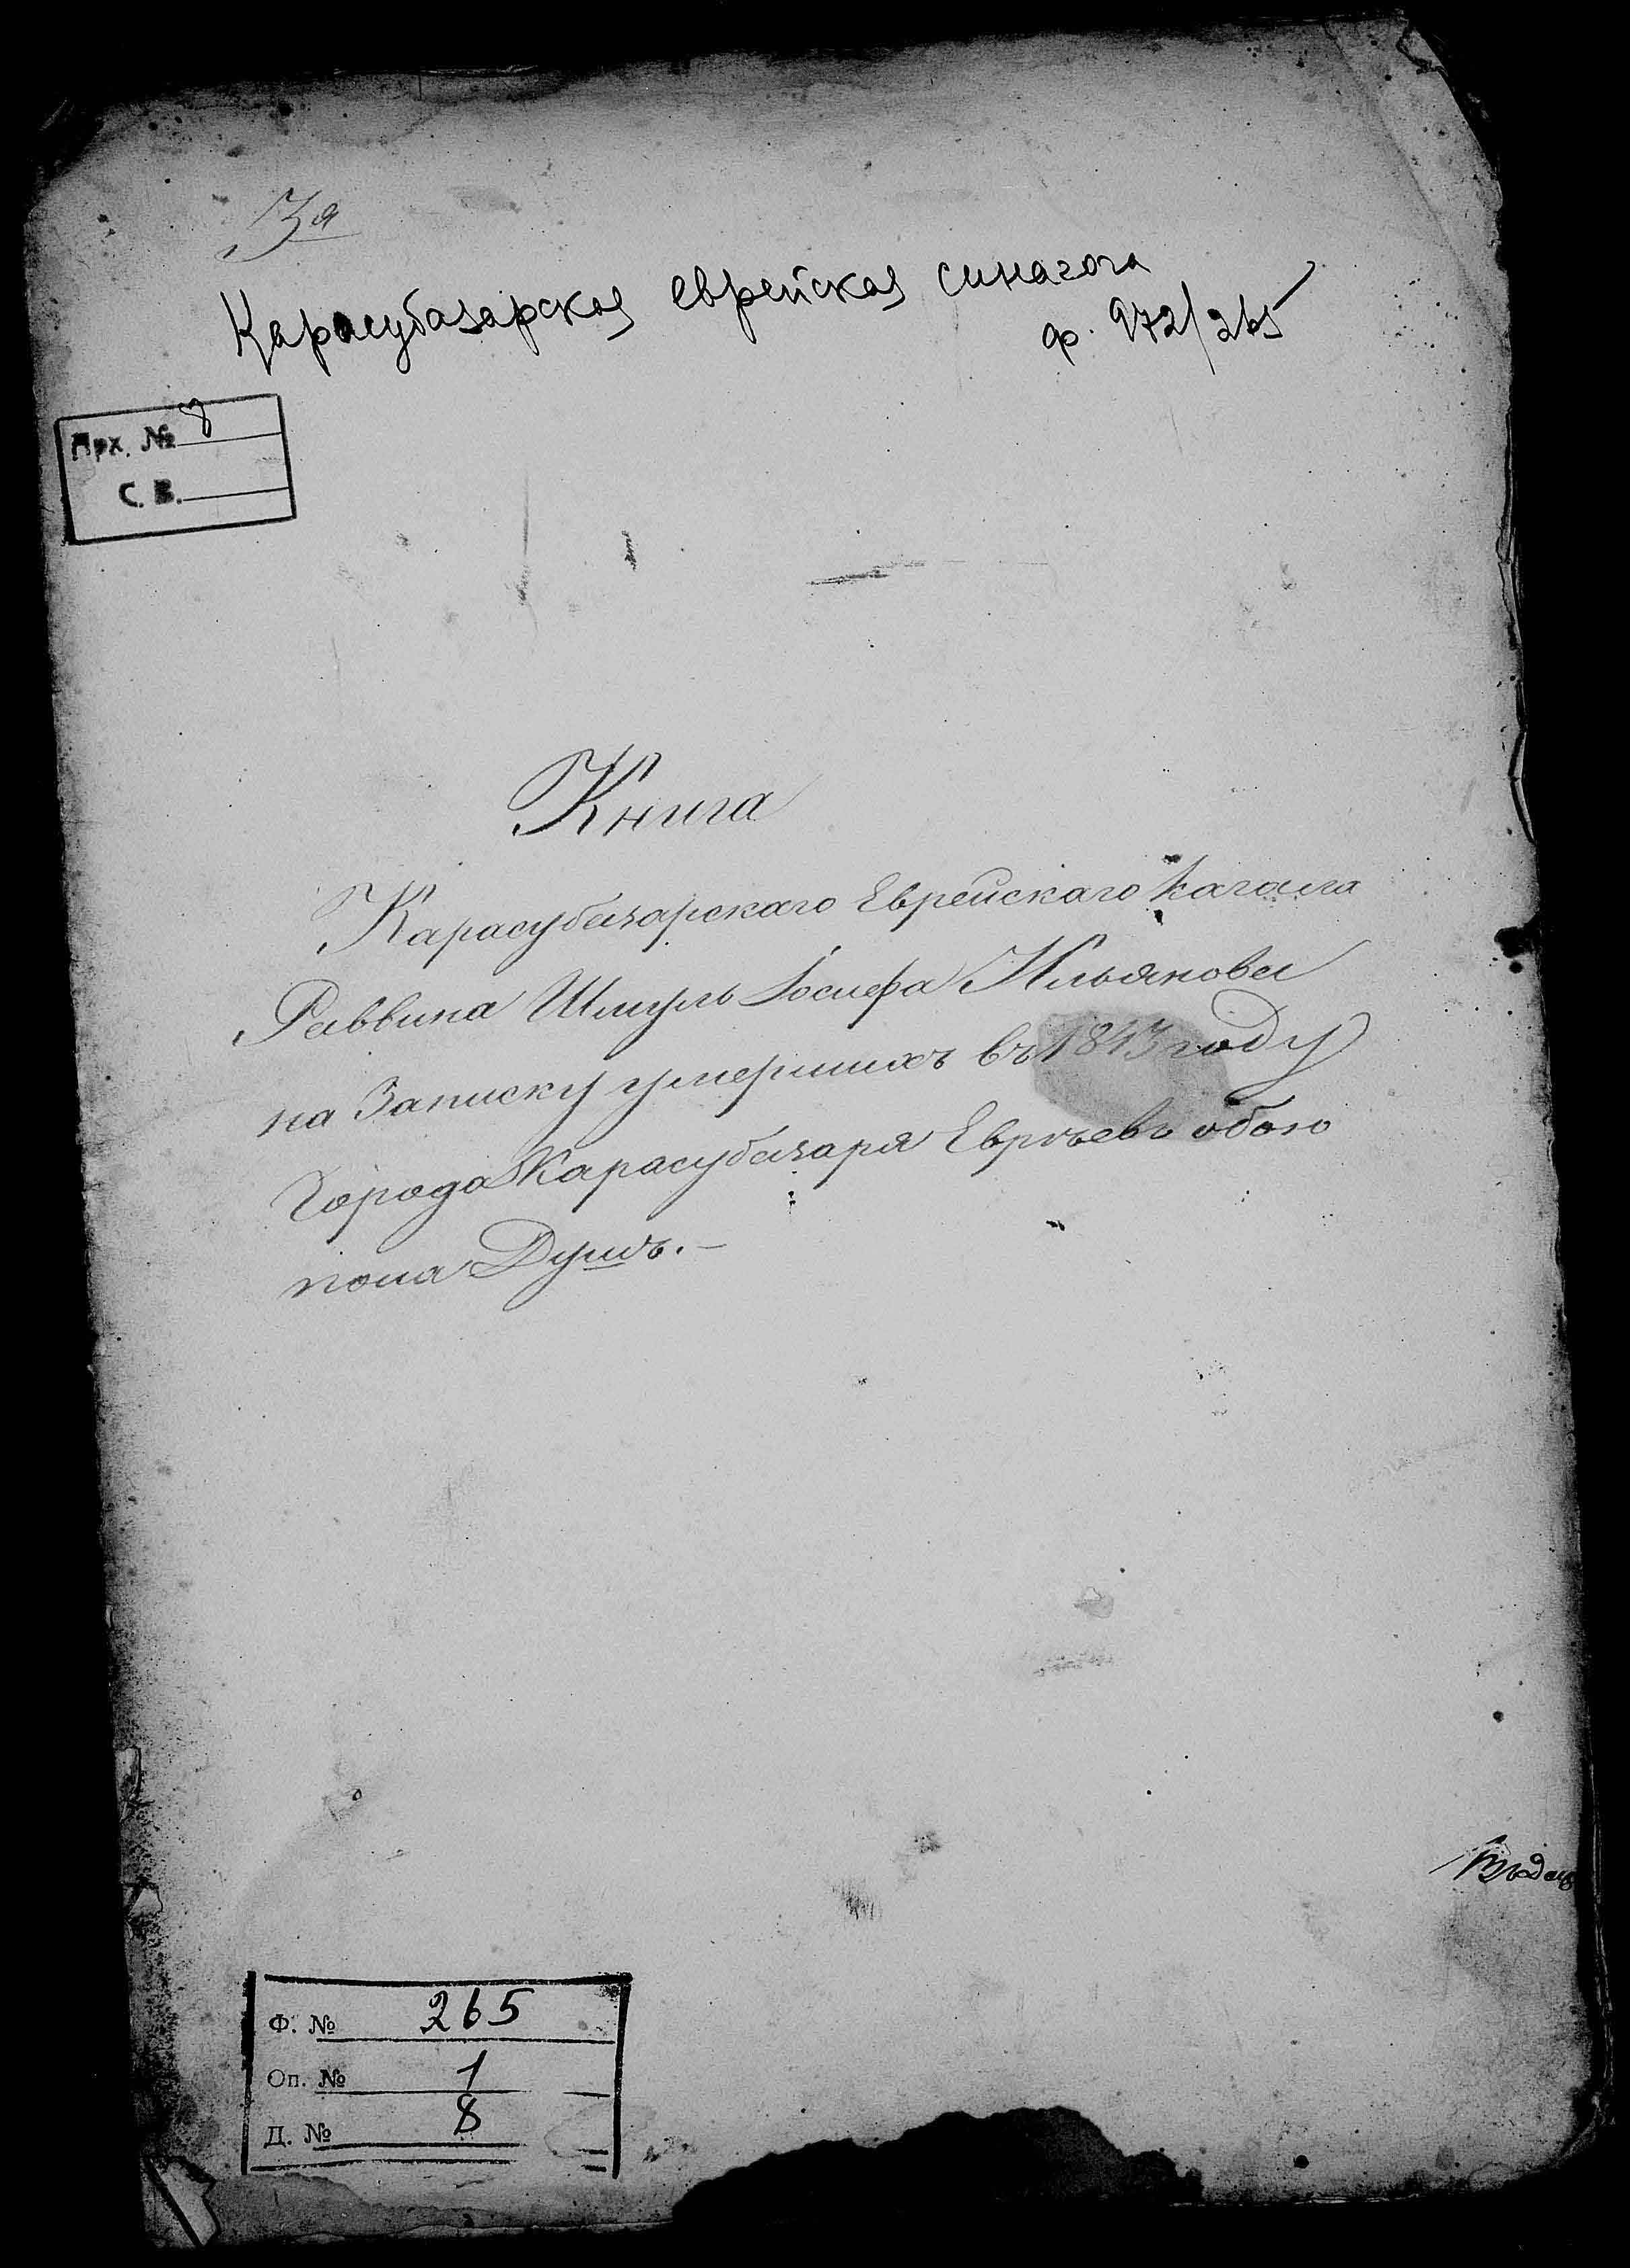 3я
Карасубазарская еврейская синагога
ф. 972/265
Арх. № 8
С. В.
Книга
Карасубазарскаго Еврейскаго Кагала
Раввина Шмуль Іосифа Ильянова
на Записку умершихъ въ 1843 году
Города Карасубазаря Евреевъ обою
пола Душъ.-
Ф. № 265
Оп. № 1
Д. № 8